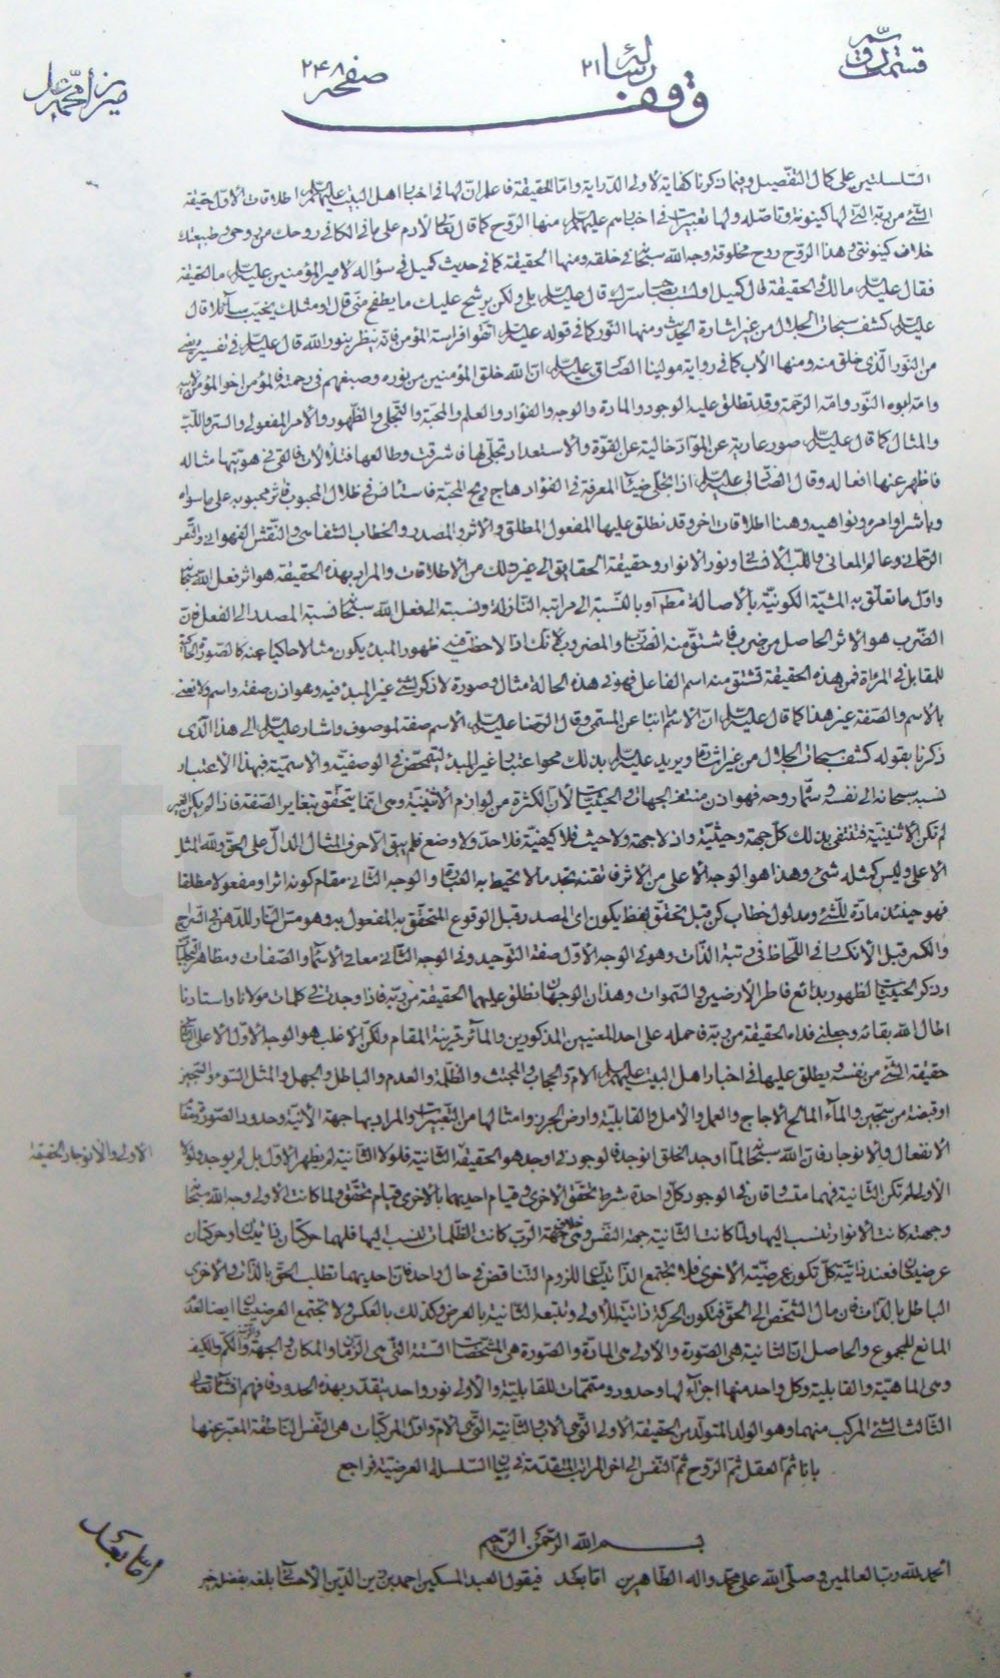 قسمت دوم رساله ۲۱ صفحه ۲۴۸ میرزا محمد علی
وقف
السلسلتين على كمال التفصيل وفيما ذكرنا كفاية لاولى الدراية واما الحقيقة فاعلم ان لها فى اخبار اهل البيت عليهم السلام اطلاقات الاول حقيقة
الشئ من ربه التى لها كينونة وتاصله ولها تعبيرات فى اخبارهم عليهم السلام منها الروح كما قال تعالى لادم على ما فى الكافى روحك من روحى وطبيعتك
خلاف كينونتى وهذا الروح روح مخلوقة وجه الله سبحانه فى خلقه ومنها الحقيقة كما فى حديث كميل فى سؤاله لامير المؤمنين عليه السلام ما الحقيقة
فقال عليه السلام مالك والحقيقة قال كميل اولست صاحب سرك قال عليه السلام بلى ولكن يرشح عليك ما يطفح منى قال اومثلك يخيب سائلا قال
عليه السلام كشف سبحات الجلال من غير اشارة الحديث ومنها النور كما فى قوله عليه السلام اتقوا فراسة المؤمن فانه ينظر بنور الله قال عليه السلام فى تفسيره يعنى
من النور الذى خلق منه ومنها الاب كما فى رواية مولينا الصادق عليه السلام ان الله خلق المؤمنين من نوره وصبغهم فى رحمته فالمؤمن اخو المؤمن لابيه
وامه ابوه النور وامه الرحمة وقد تطلق عليه الوجود والمادة والوجه والفؤاد والعلم والمحبة والتجلى والظهور والامر المفعولى والسر واللب
والمثال كما قال عليه السلام صور عارية عن المواد خالية عن القوة والاستعداد تجلى لها فاشرقت وطالعها فتلألأت فالقى فى هويتها مثاله
فاظهر عنها افعاله وقال الصادق عليه السلام اذا تجلى ضياء المعرفة فى الفؤاد هاج ريح المحبة فاستأنس فى ظلال المحبوب فاثر محبوبه على ما سواه
وباشر اوامره ونواهيه وهنا اطلاقات اخر وقد نطلق عليها المفعول المطلق والاثر والمصدر والخطاب الشفاهى والنقش الفهوانى
وعالم المعانى واللب ونور الانوار وحقيقة الحقايق الى غير ذلك من الاطلاقات والمراد بهذه الحقيقة هو اثر فعل الله سبحانه
واول ما تعلق به المشية الكونية بالاصالة مط او بالنسبة الى مراتبه النازلة ونسبته الى فعل الله سبحانه نسبة المصدر الى الفعل فان
الضرب هو الاثر الحاصل من ضرب فاشتق منه الضارب والمضروب لانك اذا لاحظت فيه ظهور المبدء يكون مثالا حاكيا عنه كالصورة
للمقابل فى المرآة فمن هذه الحقيقة تشتق منه اسم الفاعل فهو فى هذه الحالة مثال وصورة لا ذكر لشئ غير المبدء فيه وهو اذن صفة واسم ولا نعنى
بالاسم والصفة غير هذا كما قال عليه السلام ان الاسم ما انبأ عن المسمى وقال الرضا عليه السلام الاسم صفة لموصوف واشار عليه السلام الى هذا الذى
ذكرنا بقوله كشف سبحات الجلال من غير اشارة ويريد عليه السلام بذلك محو اعتبار غير المبدء ليتمحض فى الوصفية والاسمية فبهذا الاعتبار
نسبه سبحانه الى نفسه وسماه روحه فهو اذن منتفى الجهات والحيثيات لان الكثرة من لوازم الاثنينية وهى انما يتحقق بتغاير الصفة فاذا لم يكن
لم تكن الاثنينية فتنتفى بذلك كل جهة وحيثية واذ لا جهة ولا حيث فلا كيفية فلا حد ولا وضع فلم يبق الا حرف المثال الدال على الحق ولله المثل
الاعلى وليس كمثله شئ وهذا هو الوجه الاعلى من الاثر فاتقنه تجد ما لا يحيط به العبارة والوجه الثانى مقام كونه اثرا ومفعولا مطلقا
فهو حينئذ مادة للشئ ومدلول خطاب كن قبل تحقق لفظ يكون اى المصدر قبل الوقوع المتحقق به المفعول به وهو مس النار للدهن فى السراج
والكسر قبل الانكسار فى اللحاظ فى رتبة الذات وهو فى الوجه الاول صفة التوحيد وفى الوجه الثانى معانى الاسماء والصفات ومظاهر
وذكر الحيثيات لظهور بدائع فاطر الارضين والسموات وهذان الوجهان نطلق عليهما الحقيقة من ربه فاذا وجدت فى كلمات مولانا واستادنا
اطال الله بقائه وجعلنى فداه الحقيقة من ربه فاحمله على احد المعنيين المذكورين والمائز قرينة المقام ولكن الاغلب هو الوجه الاول الاعلى الثانى
حقيقة الشئ من نفسه ويطلق عليها فى اخبار اهل البيت عليهم السلام الام والحجاب والمجتث والظلمة والعدم والباطل والجهل والمثل السوء
او قبضة من سجين والماء المالح الاجاج والعمل والامل والقابلية وارض الجرز وامثالها من التعبيرات والمراد بها جهة الانية وحدود الصورة
الانفعال والانوجاد فان الله سبحانه لما اوجد الخلق انوجد فالوجود فى اوجد هو الحقيقة الثانية فلولا الثانية لم يظهر الاول بل لم يوجد ولولا
الاولى والانوجاد الحقيقة
الاولى لم تكن الثانية فهما متساوقان فى الوجود كل واحدة شرط تحقق الاخرى وقيام احديهما بالاخرى قيام تحقق ولما كانت الاولى وجه الله سبحانه
وجهته كانت الانوار تنسب اليها ولما كانت الثانية جهة النفس وهى خلاف جهة الرب كانت الظلمات تنسب اليها فلهما حركتان ذاتيتان وحركتان
عرضيتان فعند ذاتية كل تكون عرضية الاخرى فلا يجتمع الذاتيتان للزوم التناقض فى حال واحد فان احديهما تطلب الحق بالذات والاخرى
الباطل بالذات فان مال الشخص الى الحق فتكون الحركة ذاتية للاولى وتتبعه الثانية بالعرض وكذلك بالعكس ولا تجتمع العرضيتان ايضا لعدم
المانع للجموع والحاصل ان الثانية هى الصورة والاولى هى المادة والصورة هى المشخصات الستة التى هى الزمان والمكان والجهة والرتبة والكم والكيف
وهى الماهية والقابلية وكل واحد منها اجزاء لها وحدود ومتممات للقابلية والاولى نور واحد يتقدر بهذه الحدود فافهم انشاء تعالى
الثالث الشئ المركب منهما وهو الولد المتولد من الحقيقة الاولى التى هى الاب والثانية التى هى الام واول المركبات هى النفس الناطقة المعبر عنها
بانا ثم العقل ثم الروح ثم النفس الى اخر المراتب المتقدمة فى بيان السلسلة العرضية فراجع
بسم الله الرحمن الرحيم
الحمد لله رب العالمين وصلى الله على محمد واله الطاهرين اما بعد فيقول العبد المسكين احمد بن زين الدين الاحسائى
اما بعد